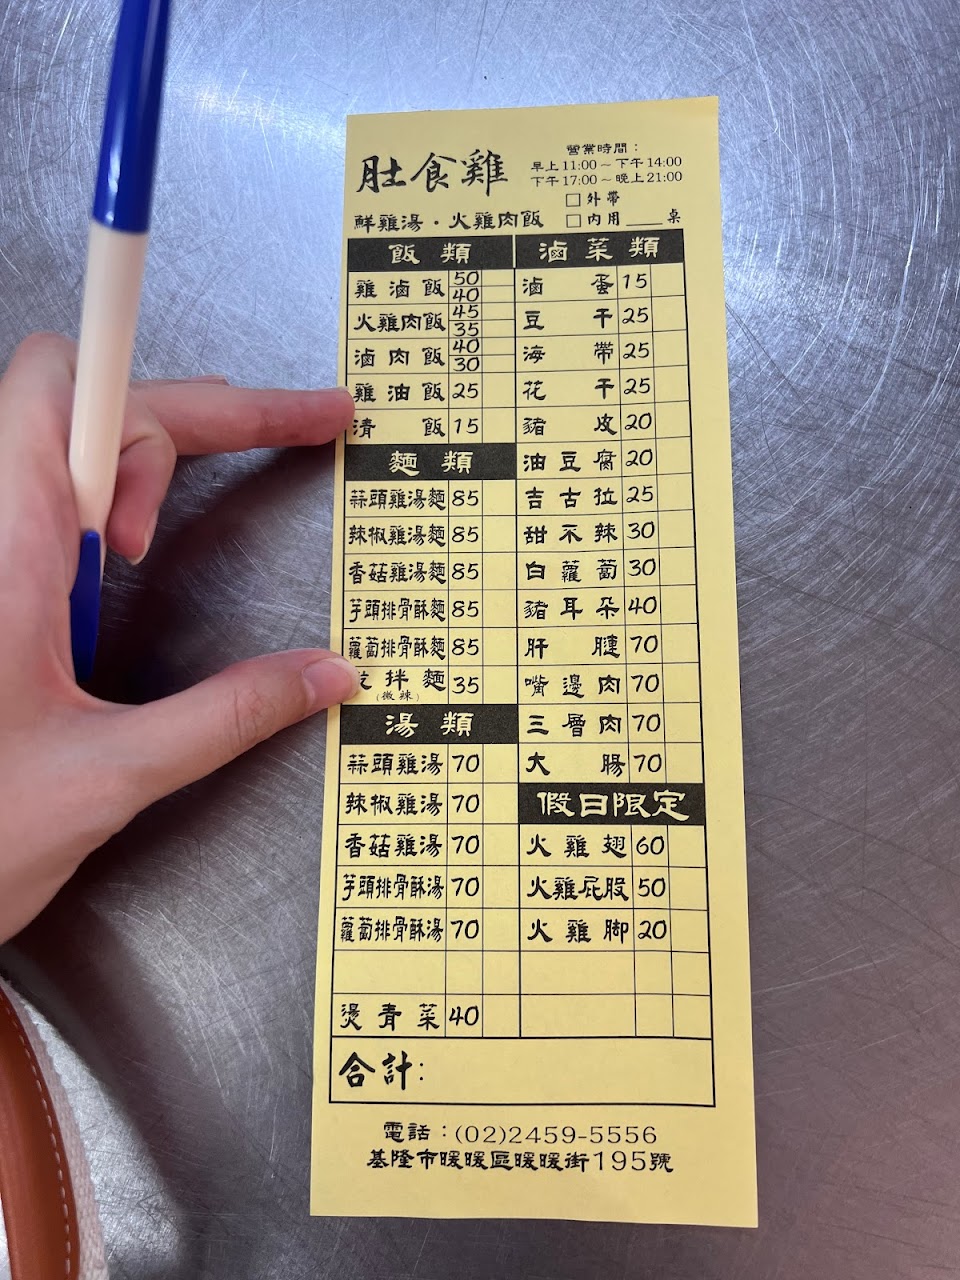 肚食雞
鮮雞湯・火雞肉飯
營業時間：
早上11:00～下午14:00
下午17:00～晚上21:00
□外帶
□內用____桌
飯類
雞滷飯 50 40
火雞肉飯 45 35
滷肉飯 40 30
雞油飯 25
清飯 15
麵類
蒜頭雞湯麵 85
辣椒雞湯麵 85
香菇雞湯麵 85
芋頭排骨酥麵 85
蘿蔔排骨酥麵 85
拌麵 35
(微辣)
湯類
蒜頭雞湯 70
辣椒雞湯 70
香菇雞湯 70
芋頭排骨酥湯 70
蘿蔔排骨酥湯 70
燙青菜 40
滷菜類
滷蛋 15
豆干 25
海帶 25
花干 25
豬皮 20
油豆腐 20
吉古拉 25
甜不辣 30
白蘿蔔 30
豬耳朵 40
肝腱 70
嘴邊肉 70
三層肉 70
大腸 70
假日限定
火雞翅 60
火雞屁股 50
火雞腳 20
合計：
電話：(02)2459-5556
基隆市暖暖區暖暖街195號